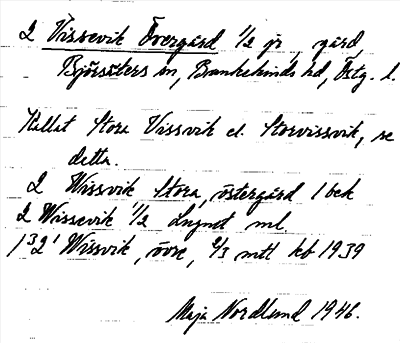 2 Vissevik Övergård 1/2 gr, gård,
Björsäters sn, Bankekinds hd, Östg. l.
Kallat Stora Vissvik el. Storvissvik, se
detta.
2 Wissvik Stora, östergård 1 bek
2 Wissevik 1/2 ml
1³2¹ Wissvik, övre, 2/3 mtl kb 1939
Maja Nordlund 1946.